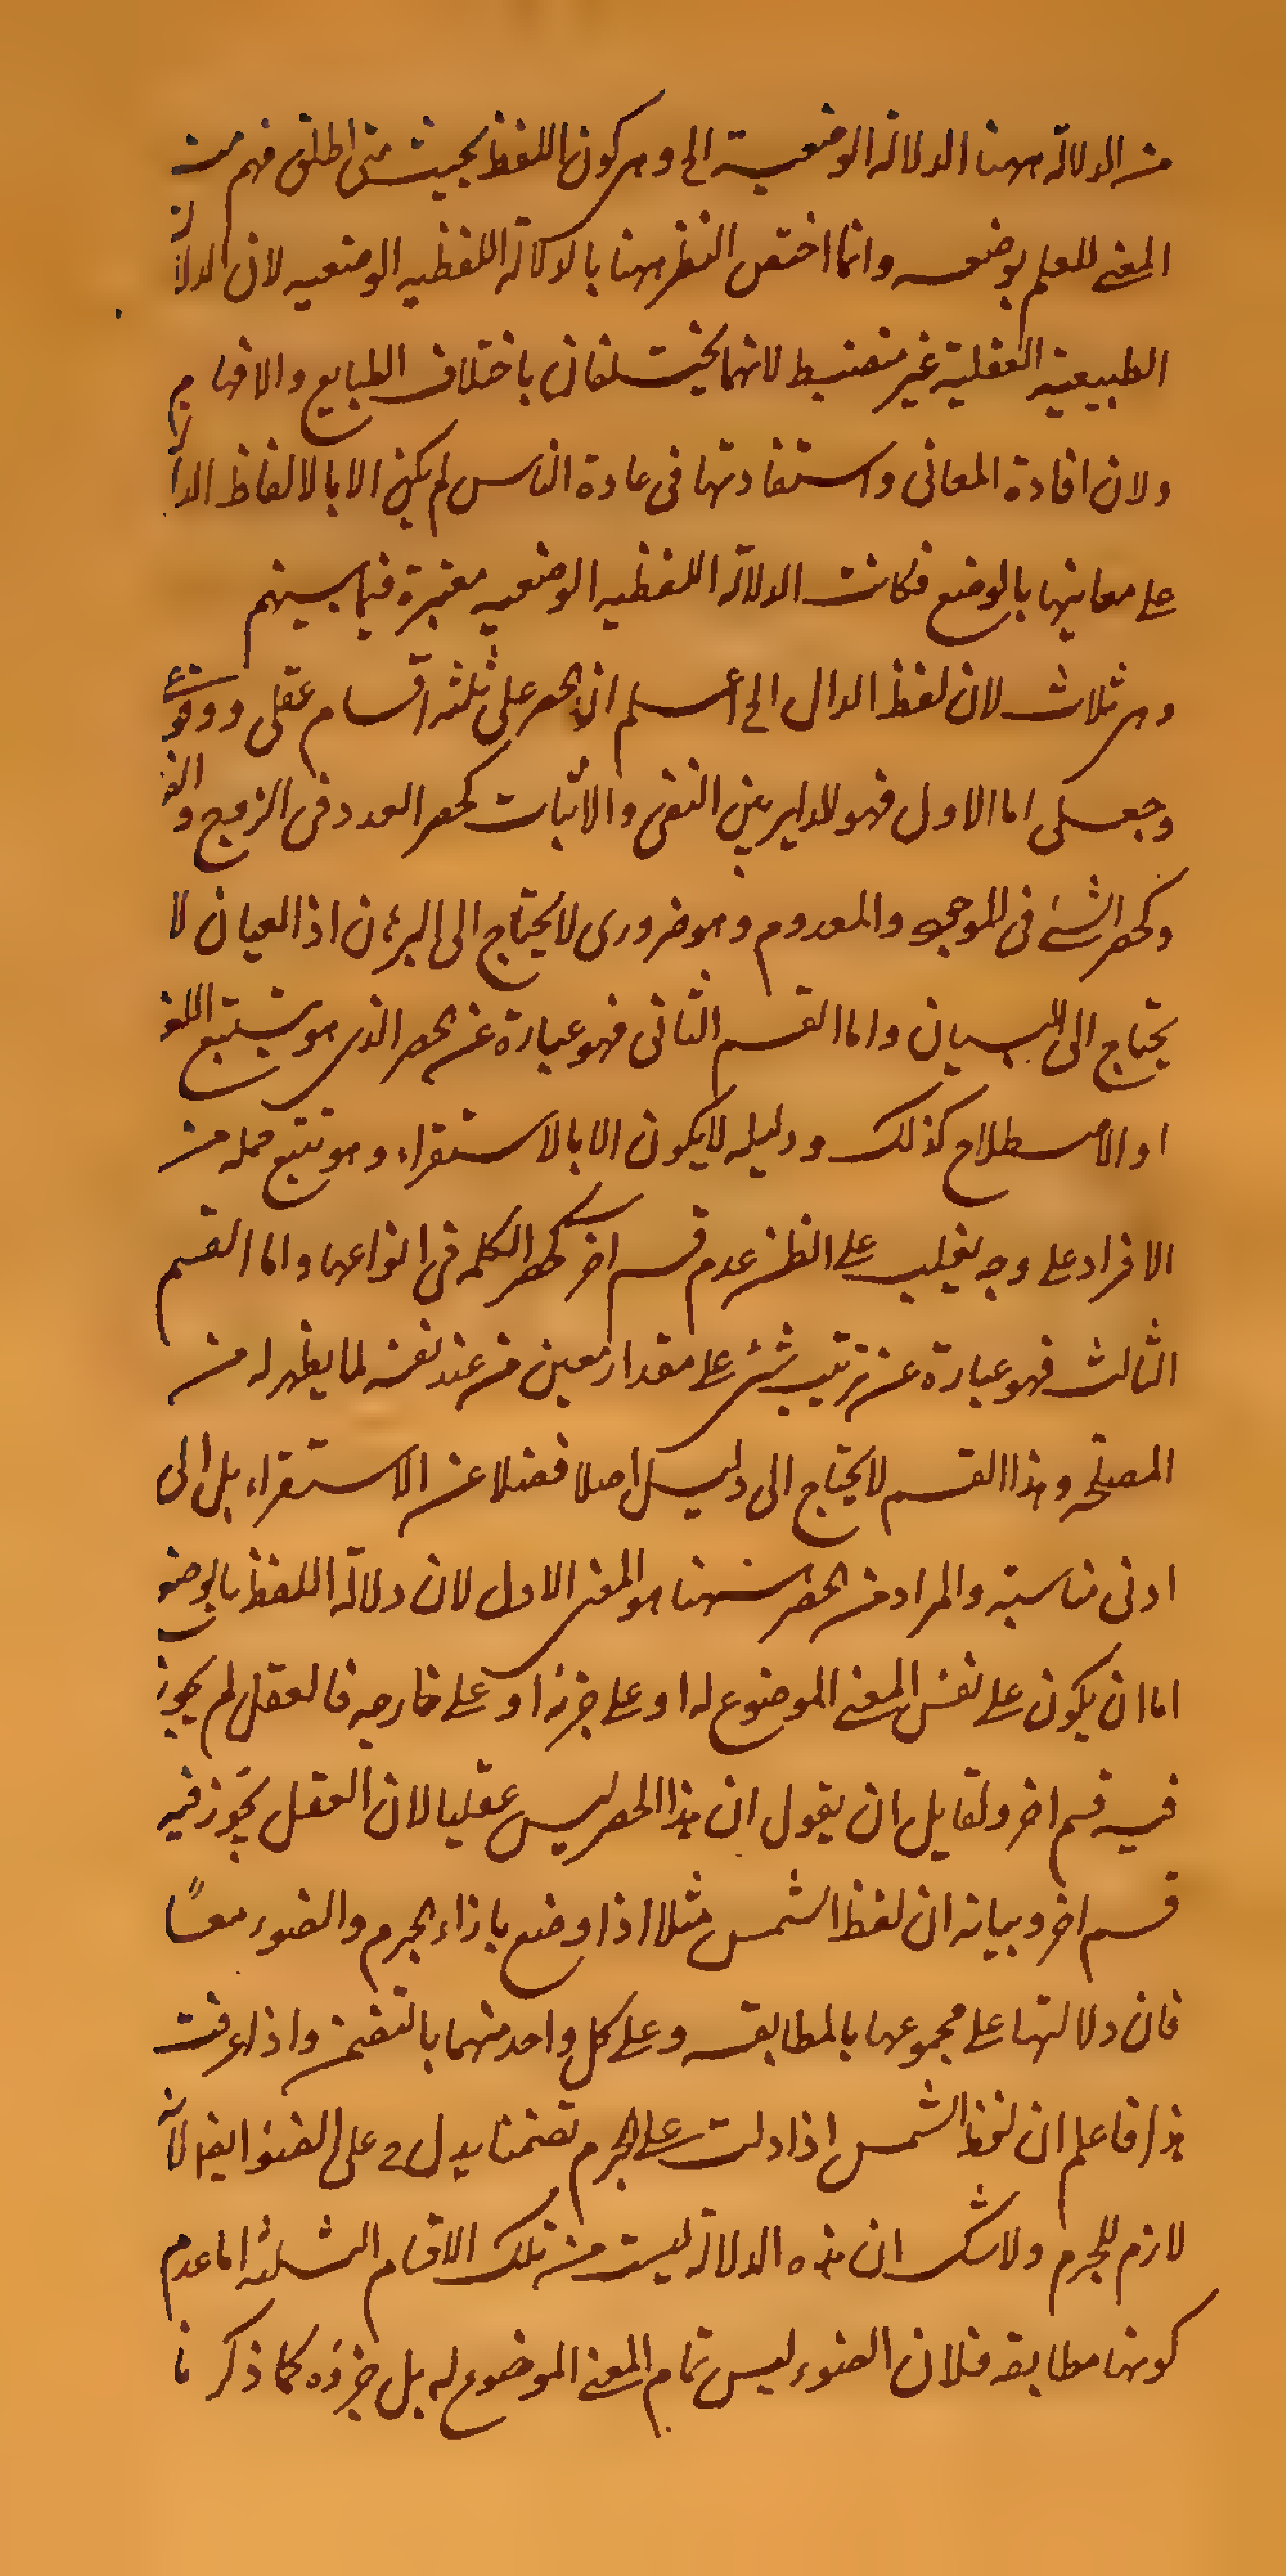 من الدلالة ههنا الدلالة الوضعية الخ وهى كون اللفظ بحيث متى اطلق فهم منه
المعنى للعلم بوضعه وانما اختص النظر ههنا بالدلالة اللفظيه الوضعيه لان الدلالة
الطبيعية العقلية غير منضبط لانهما يختلفان باختلاف الطبايع والافهام
ولان افادة المعانى واستفادتها فى عادة الناس لم يكن الا بالالفاظ الدالة
على معانيها بالوضع فكانت الدلالة اللفظيه الوضعيه معتبرة فيما بينهم
وهى ثلاث لان لفظ الدال الخ اعلم ان الحصر على ثلثة اقسام عقلى ووقوعى
وجعلى اما الاول فهو الداير بين النفى والاثبات كحصر العدد فى الزوج والفرد
وكحصر الشئ فى الموجود والمعدوم وهو ضرورى لا يحتاج الى البرهان اذ العيان لا
يحتاج الى البيان واما القسم الثانى فهو عبارة عن الحصر الذى هو بتتبع اللغة
او الاصطلاح كذلك ودليله لا يكون الا بالاستقراء وهو تتبع جملة من
الافراد على وجه يغلب على الظن عدم قسم اخر كحصر الكلمه فى انواعها واما القسم
الثالث فهو عبارة عن ترتيب شئ على مقدار معين من عند نفسه لما يظهر له من
المصلحه وهذا القسم لا يحتاج الى دليل اصلا فضلا عن الاستقراء بل الى
ادنى مناسبة والمراد من الحصر ههنا هو المعنى الاول لان دلالة اللفظ بالوضع
اما ان يكون على نفس المعنى الموضوع له او على جزئه او على خارجه فالعقل لم يجوز
فيه قسم اخر ولقايل ان يقول ان هذا الحصر ليس عقليا لان العقل يجوز فيه
قسم اخر وبيانه ان لفظ الشمس مثلا اذا وضع بازاء الجرم والضوء معًا
فان دلالتها على مجموعها بالمطابقه وعلى كل واحد منهما بالتضمن واذا عرفت
هذا فاعلم ان لفظ الشمس اذا دلت على الجرم تضمنا يدل على الضوء ايضا لانه
لازم للجرم ولاشك ان هذه الدلالة ليست من تلك الاقسام الثلثة اما عدم
كونها مطابقه فلان الضوء ليس تمام المعنى الموضوع له بل جزؤه كما ذكرنا